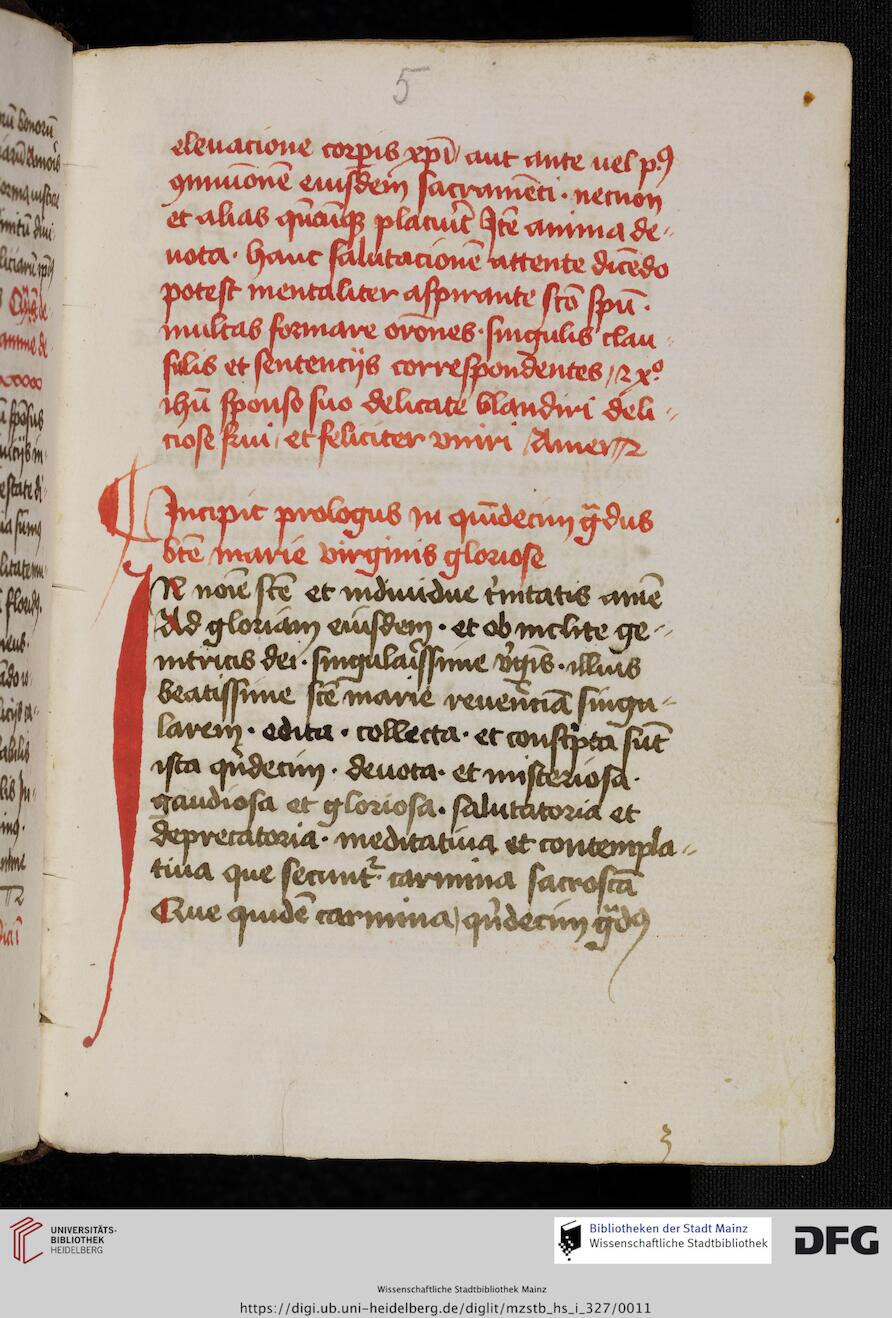 5
elevacione corpis xpi aut ante vel p9
9munionē eiusdem sacramēti · necnon
et alias qn̄cūq placuit Itē anima de-
uota · hanc salutacionē attente dicēdo
potest mentaliter aspirante scō spū ·
multas formare orōnes · singulis clau-
sulis et sentencijs correspondentes /
ihū sponso suo delicate blandiri deli-
ciose frui / et feliciter vniri / Amen
Incipit prologus in quīdecim gdus
btē marie virginis gloriose
IN noīe scē et indiuidue tinitatis amē
Ad gloriam eiusdem · et ob inclite ge-
nitricis dei · singularissime vgīs · illius
beatissime scē marie reuerēciā singu-
larem · edita · collecta · et conscpta sūt
ista qndecim · deuota · et misteriosa ·
gaudiosa et gloriosa · salutatoria et
deprecatoria · meditatiua et contempla-
tiua que secunt carmina sacroscā
Que quidē carmina) qndecim gd9
3
UNIVERSITÄTS-
BIBLIOTHEK
HEIDELBERG
Bibliotheken der Stadt Mainz
Wissenschaftliche Stadtbibliothek
DFG
Wissenschaftliche Stadtbibliothek Mainz
https://digi.ub.uni-heidelberg.de/diglit/mzstb_hs_i_327/0011